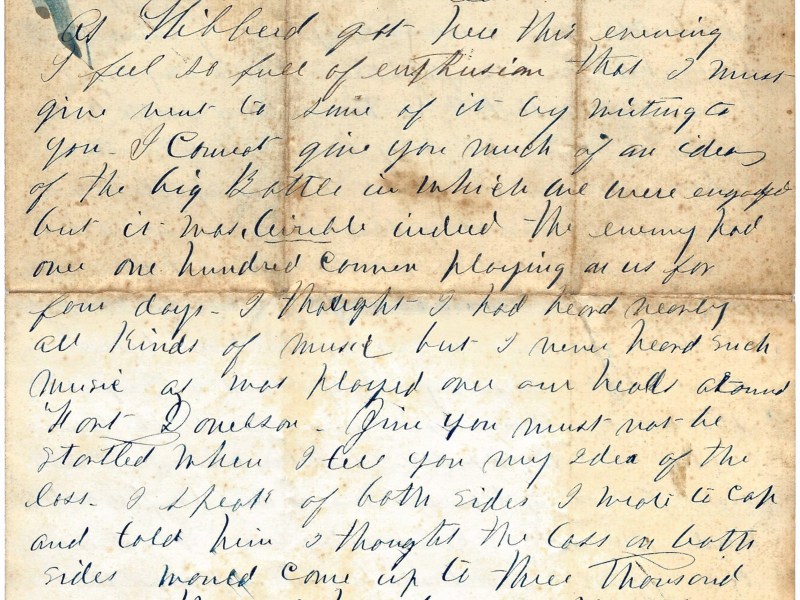 As Hibberd got here this evening
I feel so full of enthusism that I must
give vent to some of it by writing to
you - I Connot give you much of an idea
of the big Battle in which we were engaged
but it was terrible indeed the enemy had
over one hundred Connon playing on us for
four days - I thought I had heard nearly
all kinds of music but I never heard such
music as was played over our heads around
"Fort Donelson - Jine you must not be
startled when I tell you my Idea of the
loss. I speak of both sides I wrote to Cap
and told him I thought the loss on both
sides would come up to three Thousand